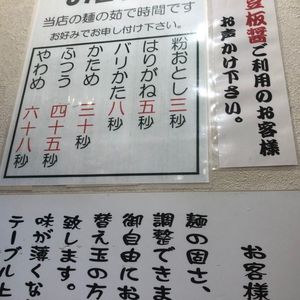 当店の麺の茹で時間です
お好みでお申し付け下さい。
粉おとし三秒
はりがね五秒
バリかた八秒
かため三十秒
ふつう四十五秒
やわめ六十八秒
豆板醤ご利用のお客様
お声かけ下さい。
お客様
麺の固さ、
調整できま
御自由にお
替え玉の方
致します。
味が薄くな
テーブル上